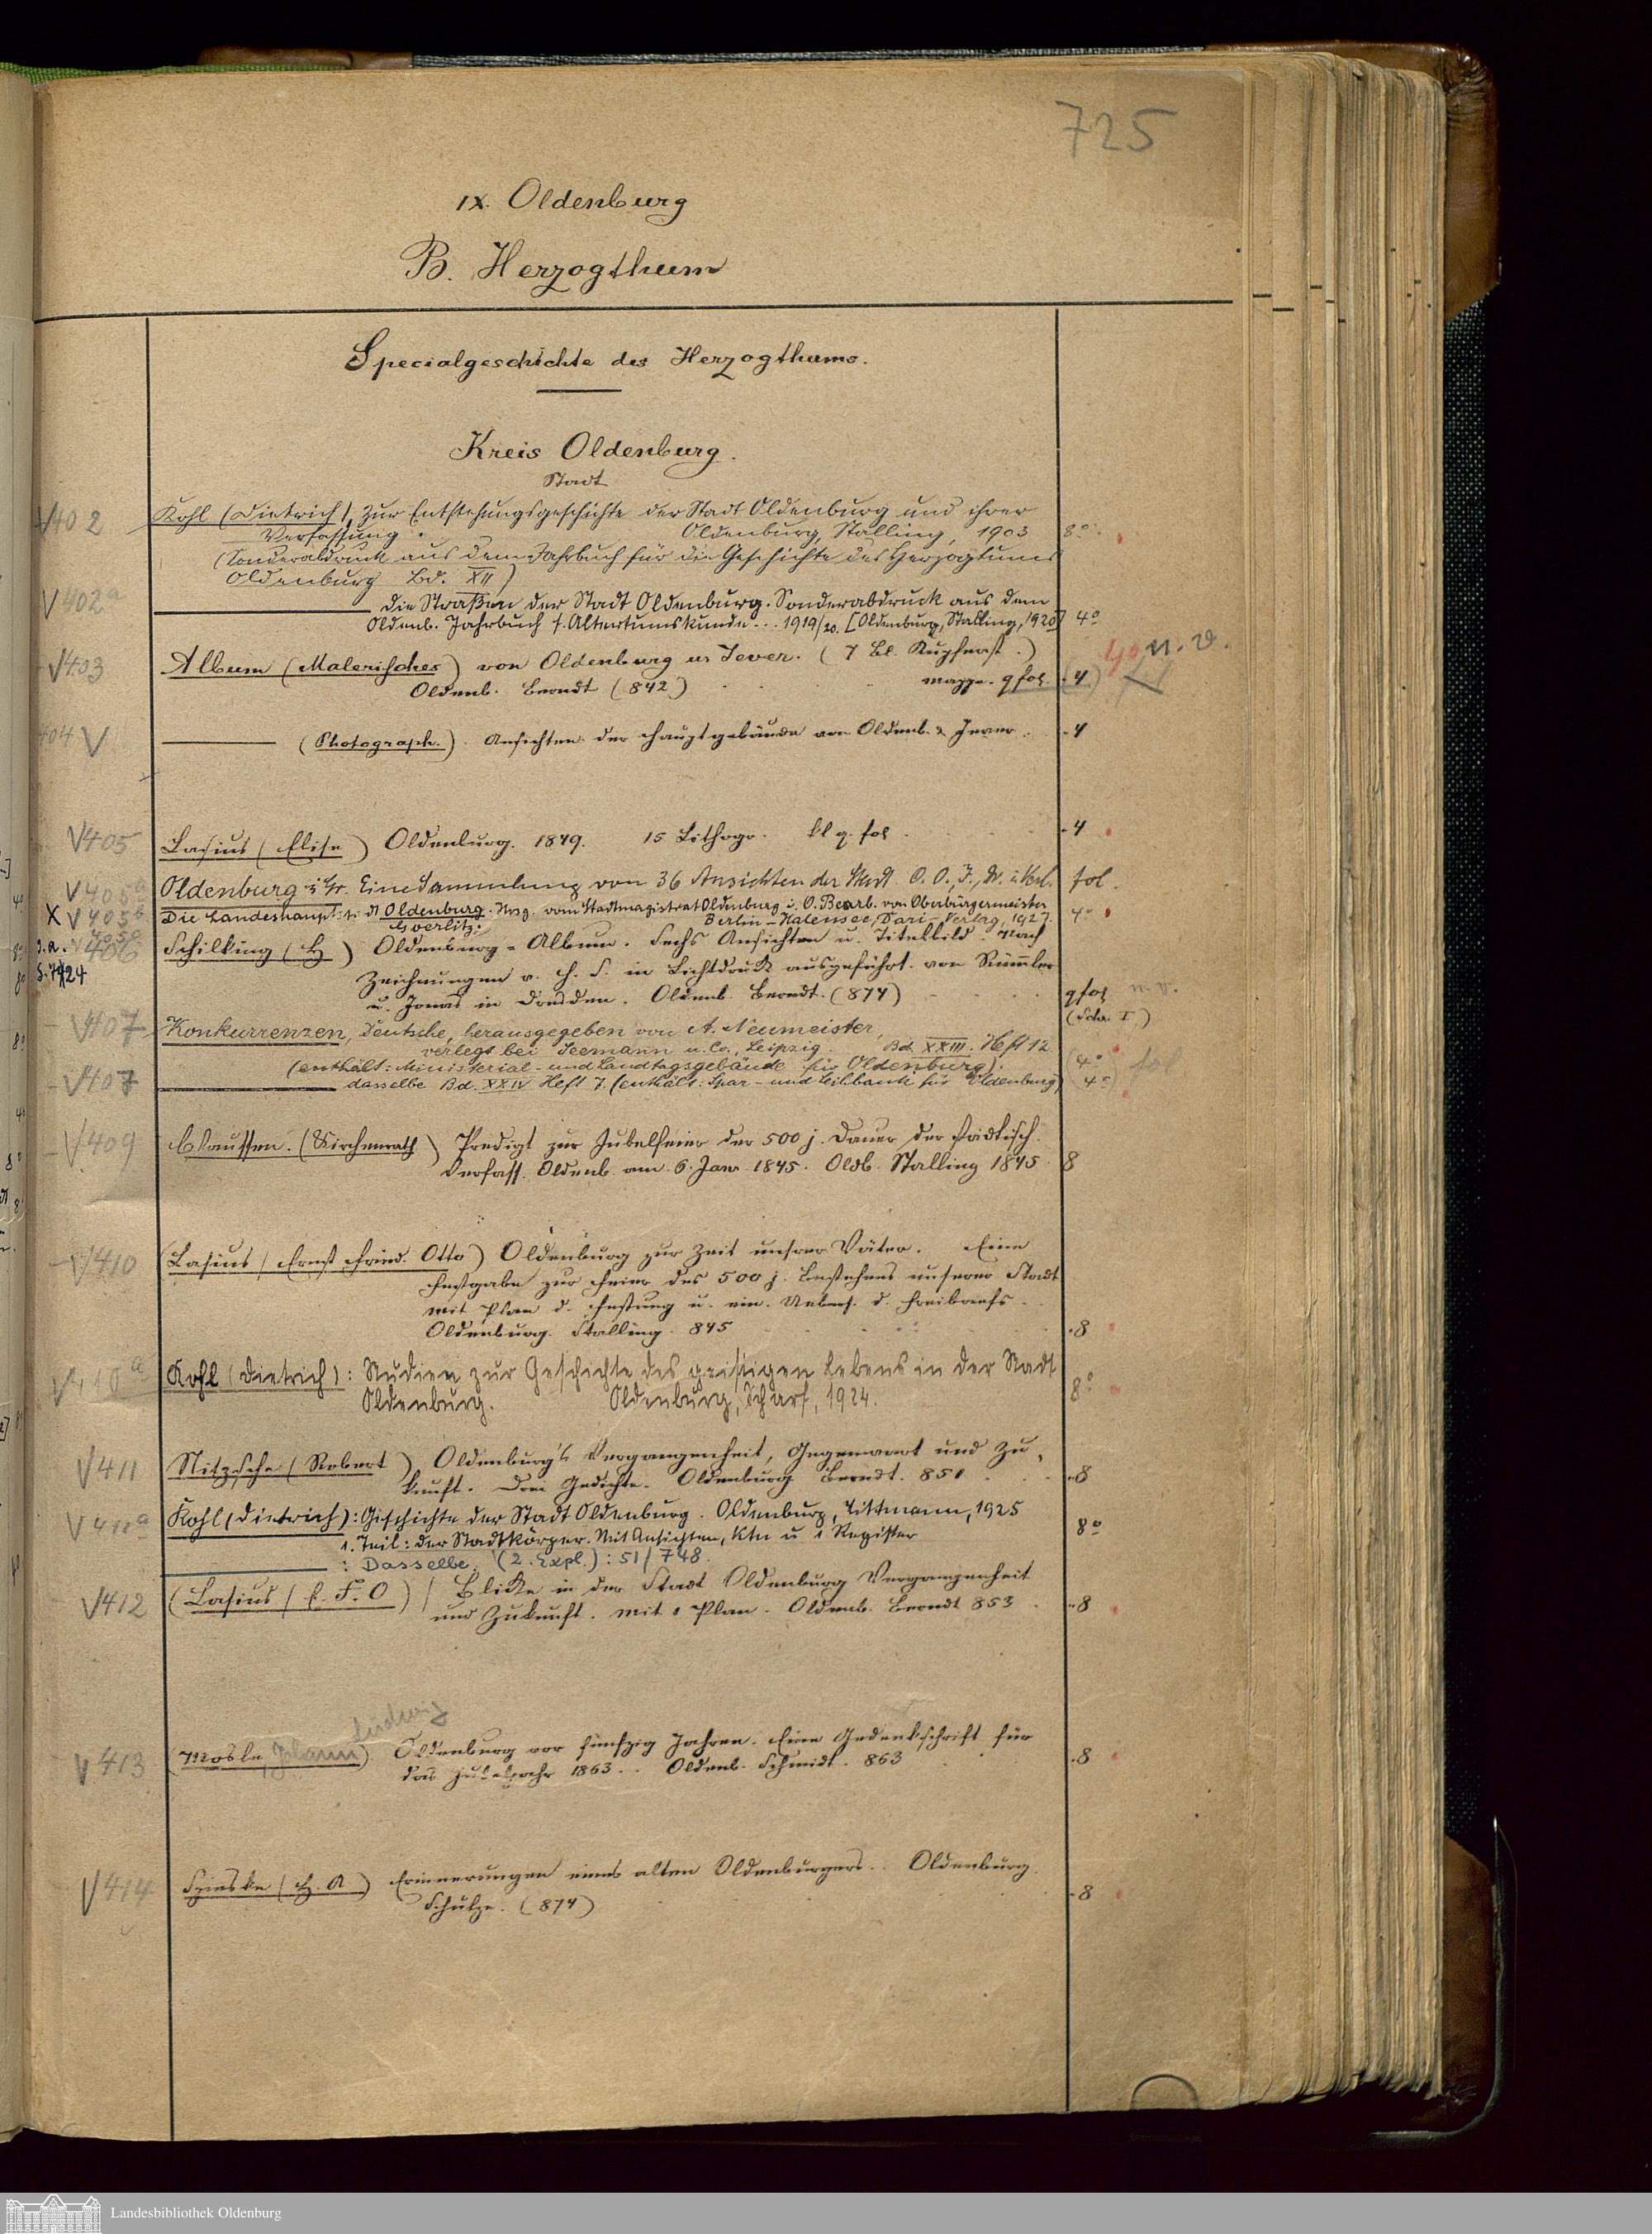 725
IX. Oldenburg
B. Herzogthum
Specialgeschichte des Herzogthums.
Kreis Oldenburg.
Stadt
V402 Kohl (Dietrich), Zur Entstehungsgeschichte der Stadt Oldenburg und ihrer
Verfassung. Oldenburg, Stalling, 1903 8°
(Sonderabdruck aus dem Jahrbuch für die Geschichte des Herzogtums
Oldenburg Bd. XII)
V402a Die Straßen der Stadt Oldenburg. Sonderabdruck aus dem
Oldenb. Jahrbuch f. Altertumskunde... 1919/20. [Oldenburg, Stalling, 1920] 4°
V403 Album (Malerisches) von Oldenburg u. Jever. (7 Bl. Kupferst.) n. v.
Oldenb. Berndt (842) Mappe. qfol. 4
404 V (Photograph.) Ansichten der Hauptgebäude von Oldenb. & Jever. 4
V405 Lasius (Elise) Oldenburg. 1849. 15 Lithogr. kl q. fol. 4
V405a Oldenburg i/Gr. Eine Sammlung von 36 Ansichten der Stadt. O. O., J., Dr. u. Verl. fol.
X V405b Die Landeshauptst. Oldenburg. Hrsg. vom Stadtmagistrat Oldenburg i. O. Bearb. von Oberbürgermeister 4°
Goerlitz. Berlin-Halensee, Dari-Verlag, 1927.
s.a. V406 Schilking (H) Oldenburg-Album. Sechs Ansichten u. Titelbild. Nach
S. 724
Zeichnungen v. H. S. in Lichtdruck ausgeführt von Römmler
u. Jonas in Dresden. Oldenb. Berndt. (874) qfol n. v.
(Schr. I)
V407 Konkurrenzen, Deutsche, herausgegeben von A. Neumeister,
verlegt bei Seemann u. Co., Leipzig. Bd. XXIII. Heft 12
(enthält: Ministerial- und Landtagsgebäude für Oldenburg). 4° fol
V407 dasselbe Bd. XXIV Heft 7. (enthält: Spar- und Leihbank für Oldenburg) 4°
V409 Claussen. (Kirchenrath) Predigt zur Jubelfeier der 500 j. Dauer der städtisch.
Verfass. Oldenb. am 6. Jan. 1845. Oldb. Stalling 1845. 8
V410 (Lasius (Ernst Fried. Otto) Oldenburg zur Zeit unsrer Väter. Eine
Festgabe zur Feier des 500 j. Bestehens unserer Stadt
mit Plan d. Festung u. ein. Uebers. d. Freibriefs.
Oldenburg. Stalling. 845 8
V410a Kohl (Dietrich): Studien zur Geschichte des geistigen Lebens in der Stadt
Oldenburg. Oldenburg, Scharf, 1924. 8°
V411 Nitzsche (Robert) Oldenburg's Vergangenheit, Gegenwart und Zu-
kunft. Drei Gedichte. Oldenburg Berndt. 851 8
V411a Kohl (Dietrich): Geschichte der Stadt Oldenburg. Oldenburg, Littmann, 1925
1. Teil: der Stadtkörper. Mit Ansichten, Ktn u 1 Register 8°
: Dasselbe. (2. Expl.): 51/748.
V412 (Lasius (E. F. O) Blicke in der Stadt Oldenburg Vergangenheit
und Zukunft. mit 1 Plan. Oldenb. Berndt 853 8
Ludwig
V413 (Mosle, Johann) Oldenburg vor fünfzig Jahren. Eine Gedenkschrift für
das Jubeljahr 1863. Oldenb. Schmidt. 863 8
V414 Spieske (H. A) Erinnerungen eines alten Oldenburgers. Oldenburg.
Schulze. (874) 8
Landesbibliothek Oldenburg